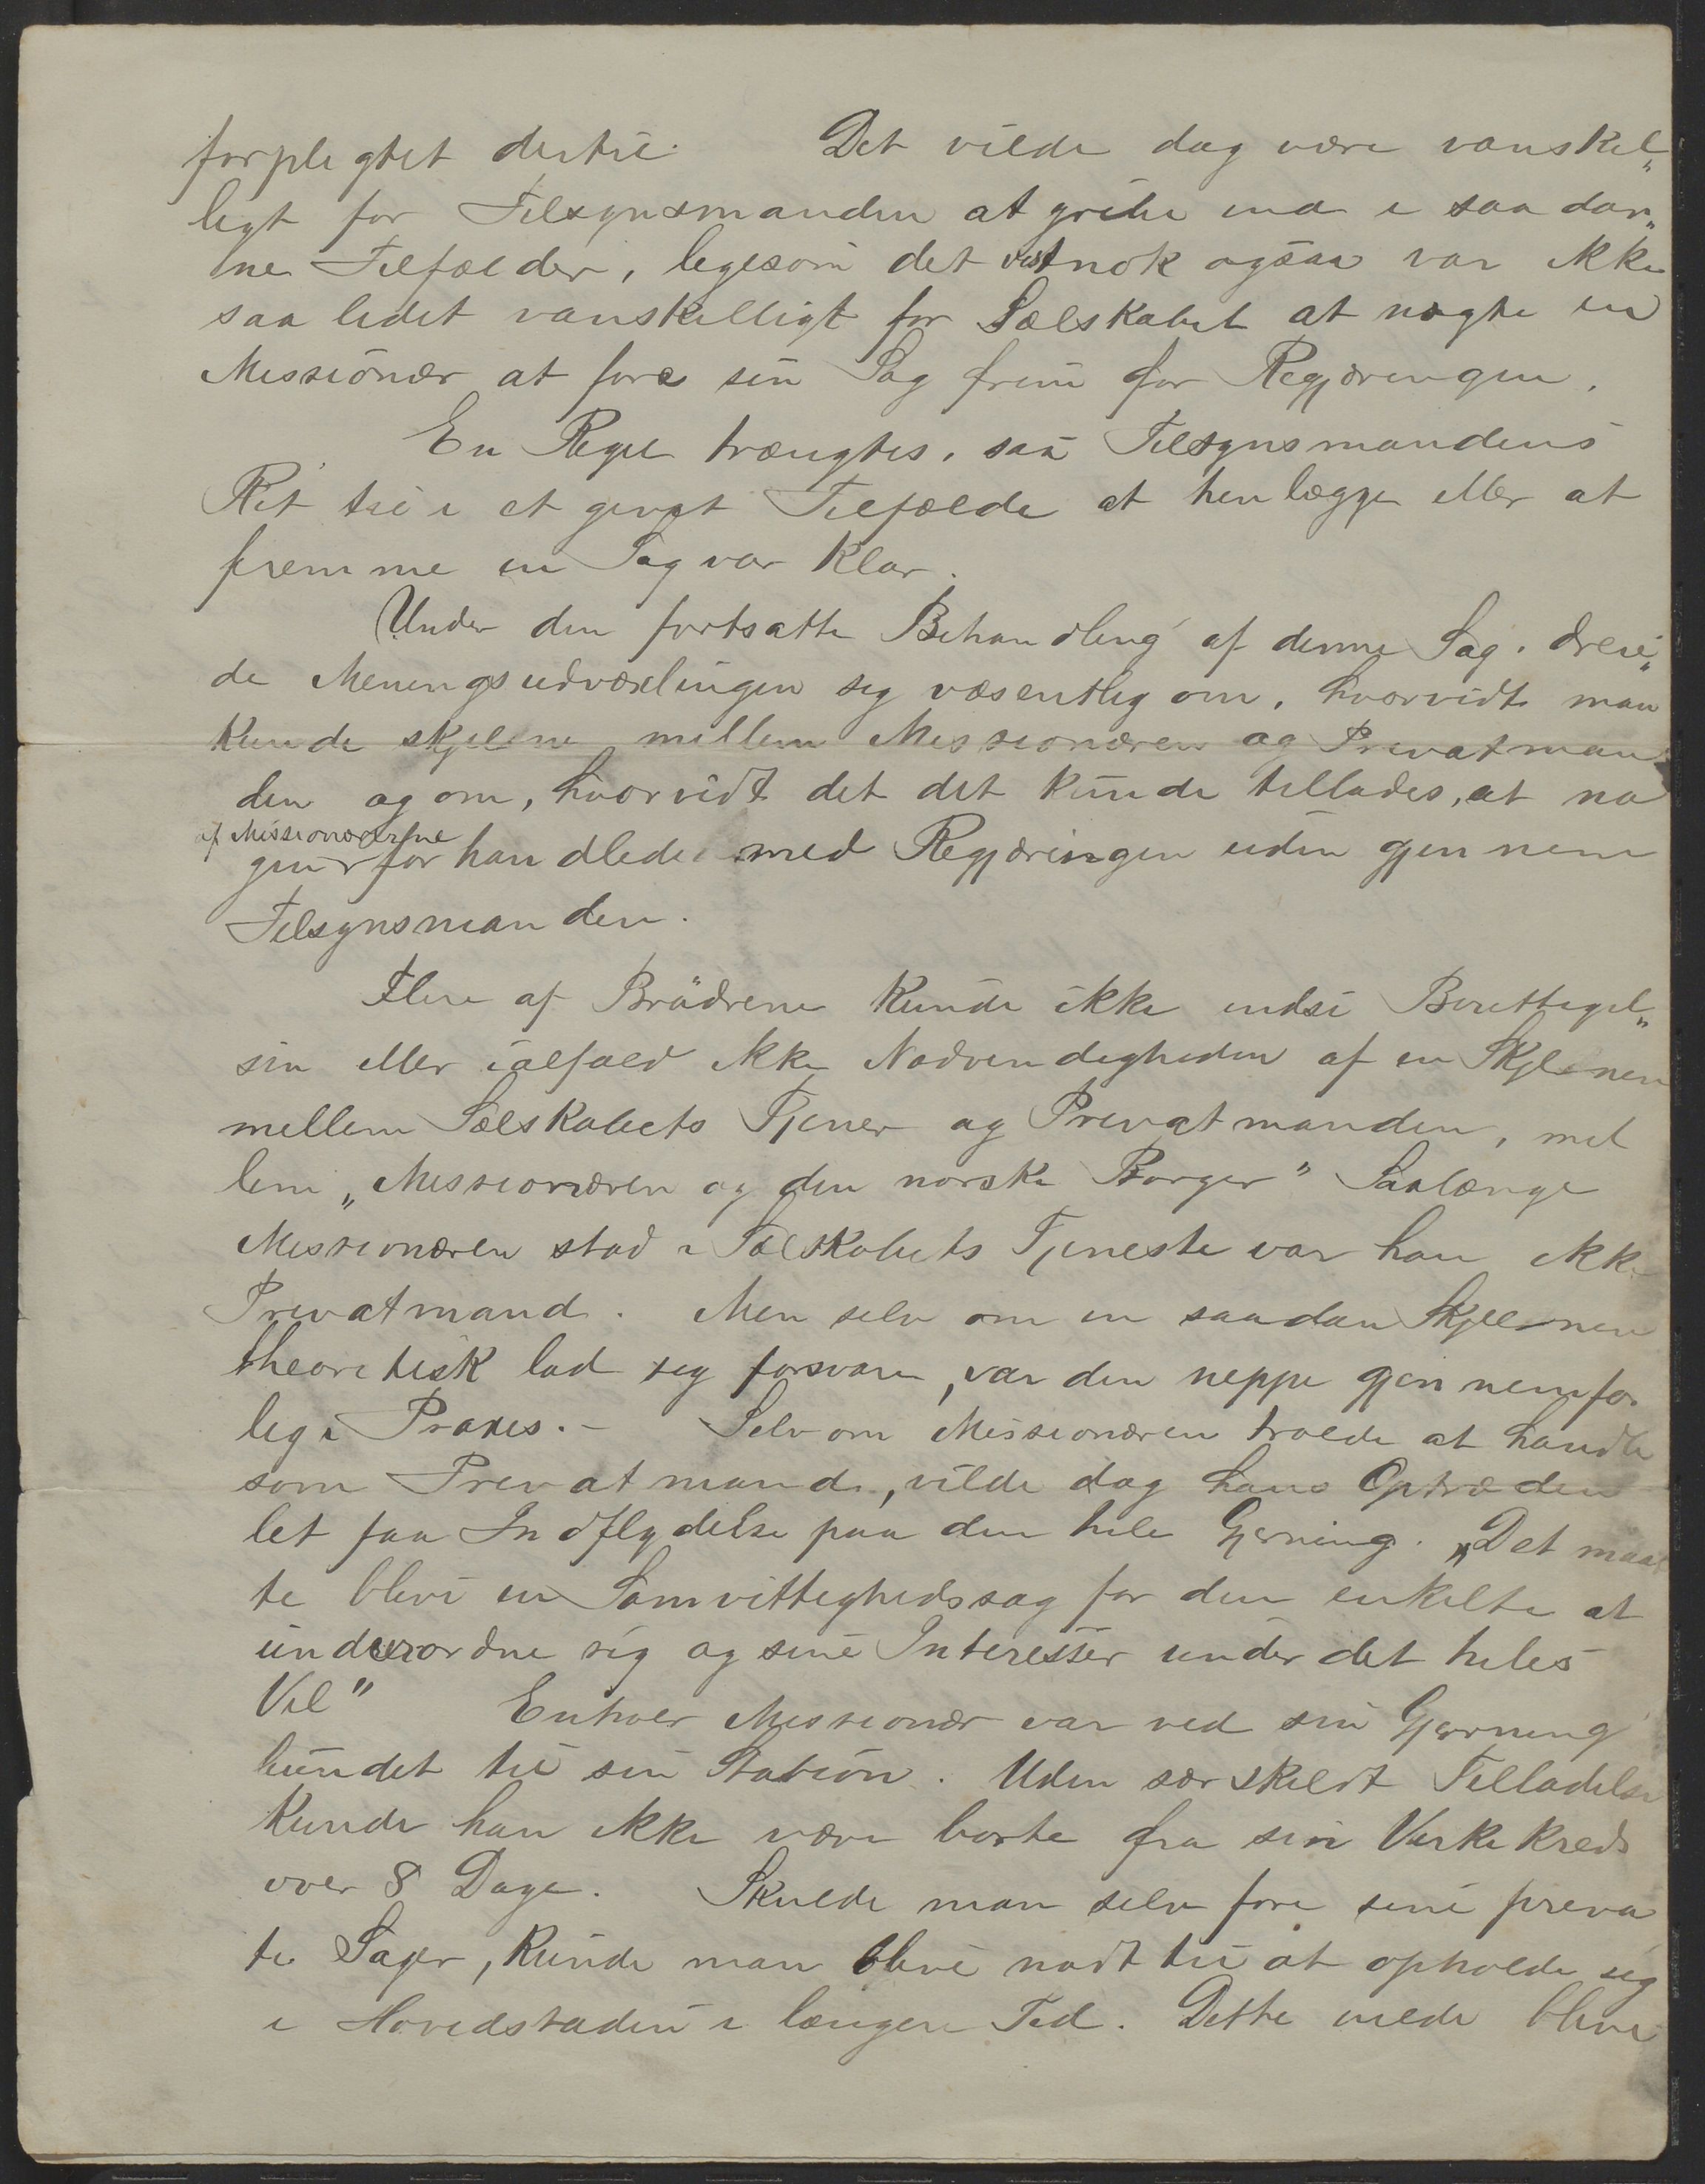 forpligtet dertil. Det vilde dog være vanskel„
ligt for Tilsynsmanden at gribe ind i saa dan„
ne Tilfælder, ligesom det vistnok ogsaa var ikke
saa lidet vanskelligt for Sælskabet at nægte en
Missionær at føre sin Sag frem for Regjæringen.
En Regel trængtes, saa Tilsynsmandens
Ret til i et givet Tilfælde at henlægge eller at
fremme en Sag var klar.
Under den fortsatte Behandling af denne Sag, dreie„
de Meningsudvexlingen sig væsentlig om, hvorvidt man
kunde skjelne mellem Missionæren og Privatman
den og om, hvorvidt det det kunde tillades, at no
af Missionærerne
gen forhandlede med Regjæringen uden gjennem
Tilsynsmanden.
Flere af Brødrene kunde ikke indse Berettigel„
sen eller ialfald ikke Nødvendigheden af en Skjelnen
mellem Sælskabets Tjener og Privatmanden, mel
lem „Missionæren og den norske Borger" Saalænge
Missionæren stod i Sælskabets Tjeneste var han ikke
Privatmand. Men selv om en saadan Skjelnen
theoretisk lod sig forsvare, var den neppe gjennemfør
lig i Praxis.- Selv om Missionæren troede at handle
som Privatmand, vilde dog hans Optræden
let faa Indflydelse paa den hele Gjerning. „Det maat
te blive en Samvittighedssag for den enkelte at
underordne sig og sine Interesser under det heles
Vel" Enhver Missionær var ved sin Gjerning
bundet til sin Station. Uden særskildt Tilladelse
kunde han ikke være borte fra sin Virkekreds
over 8 Dage. Skulde man selv føre sine priva
te Sager, kunde man blive nødt til at opholde sig
i Hovedstaden i længere Tid. Dette vilde blive